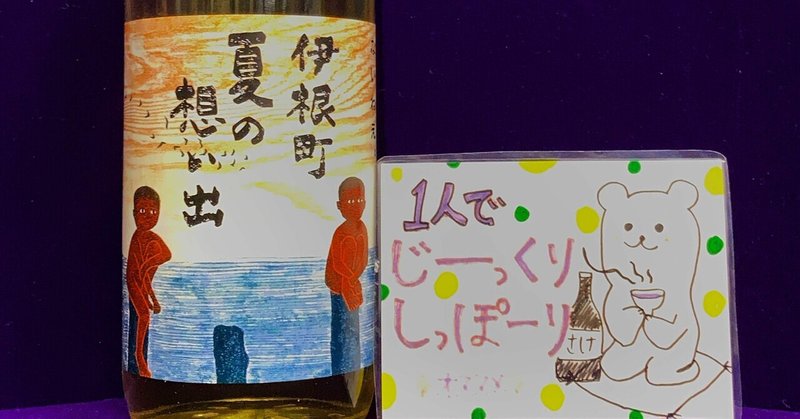 伊根町
夏の
想い出
1人で
じーっくり
しっぽーり
さけ